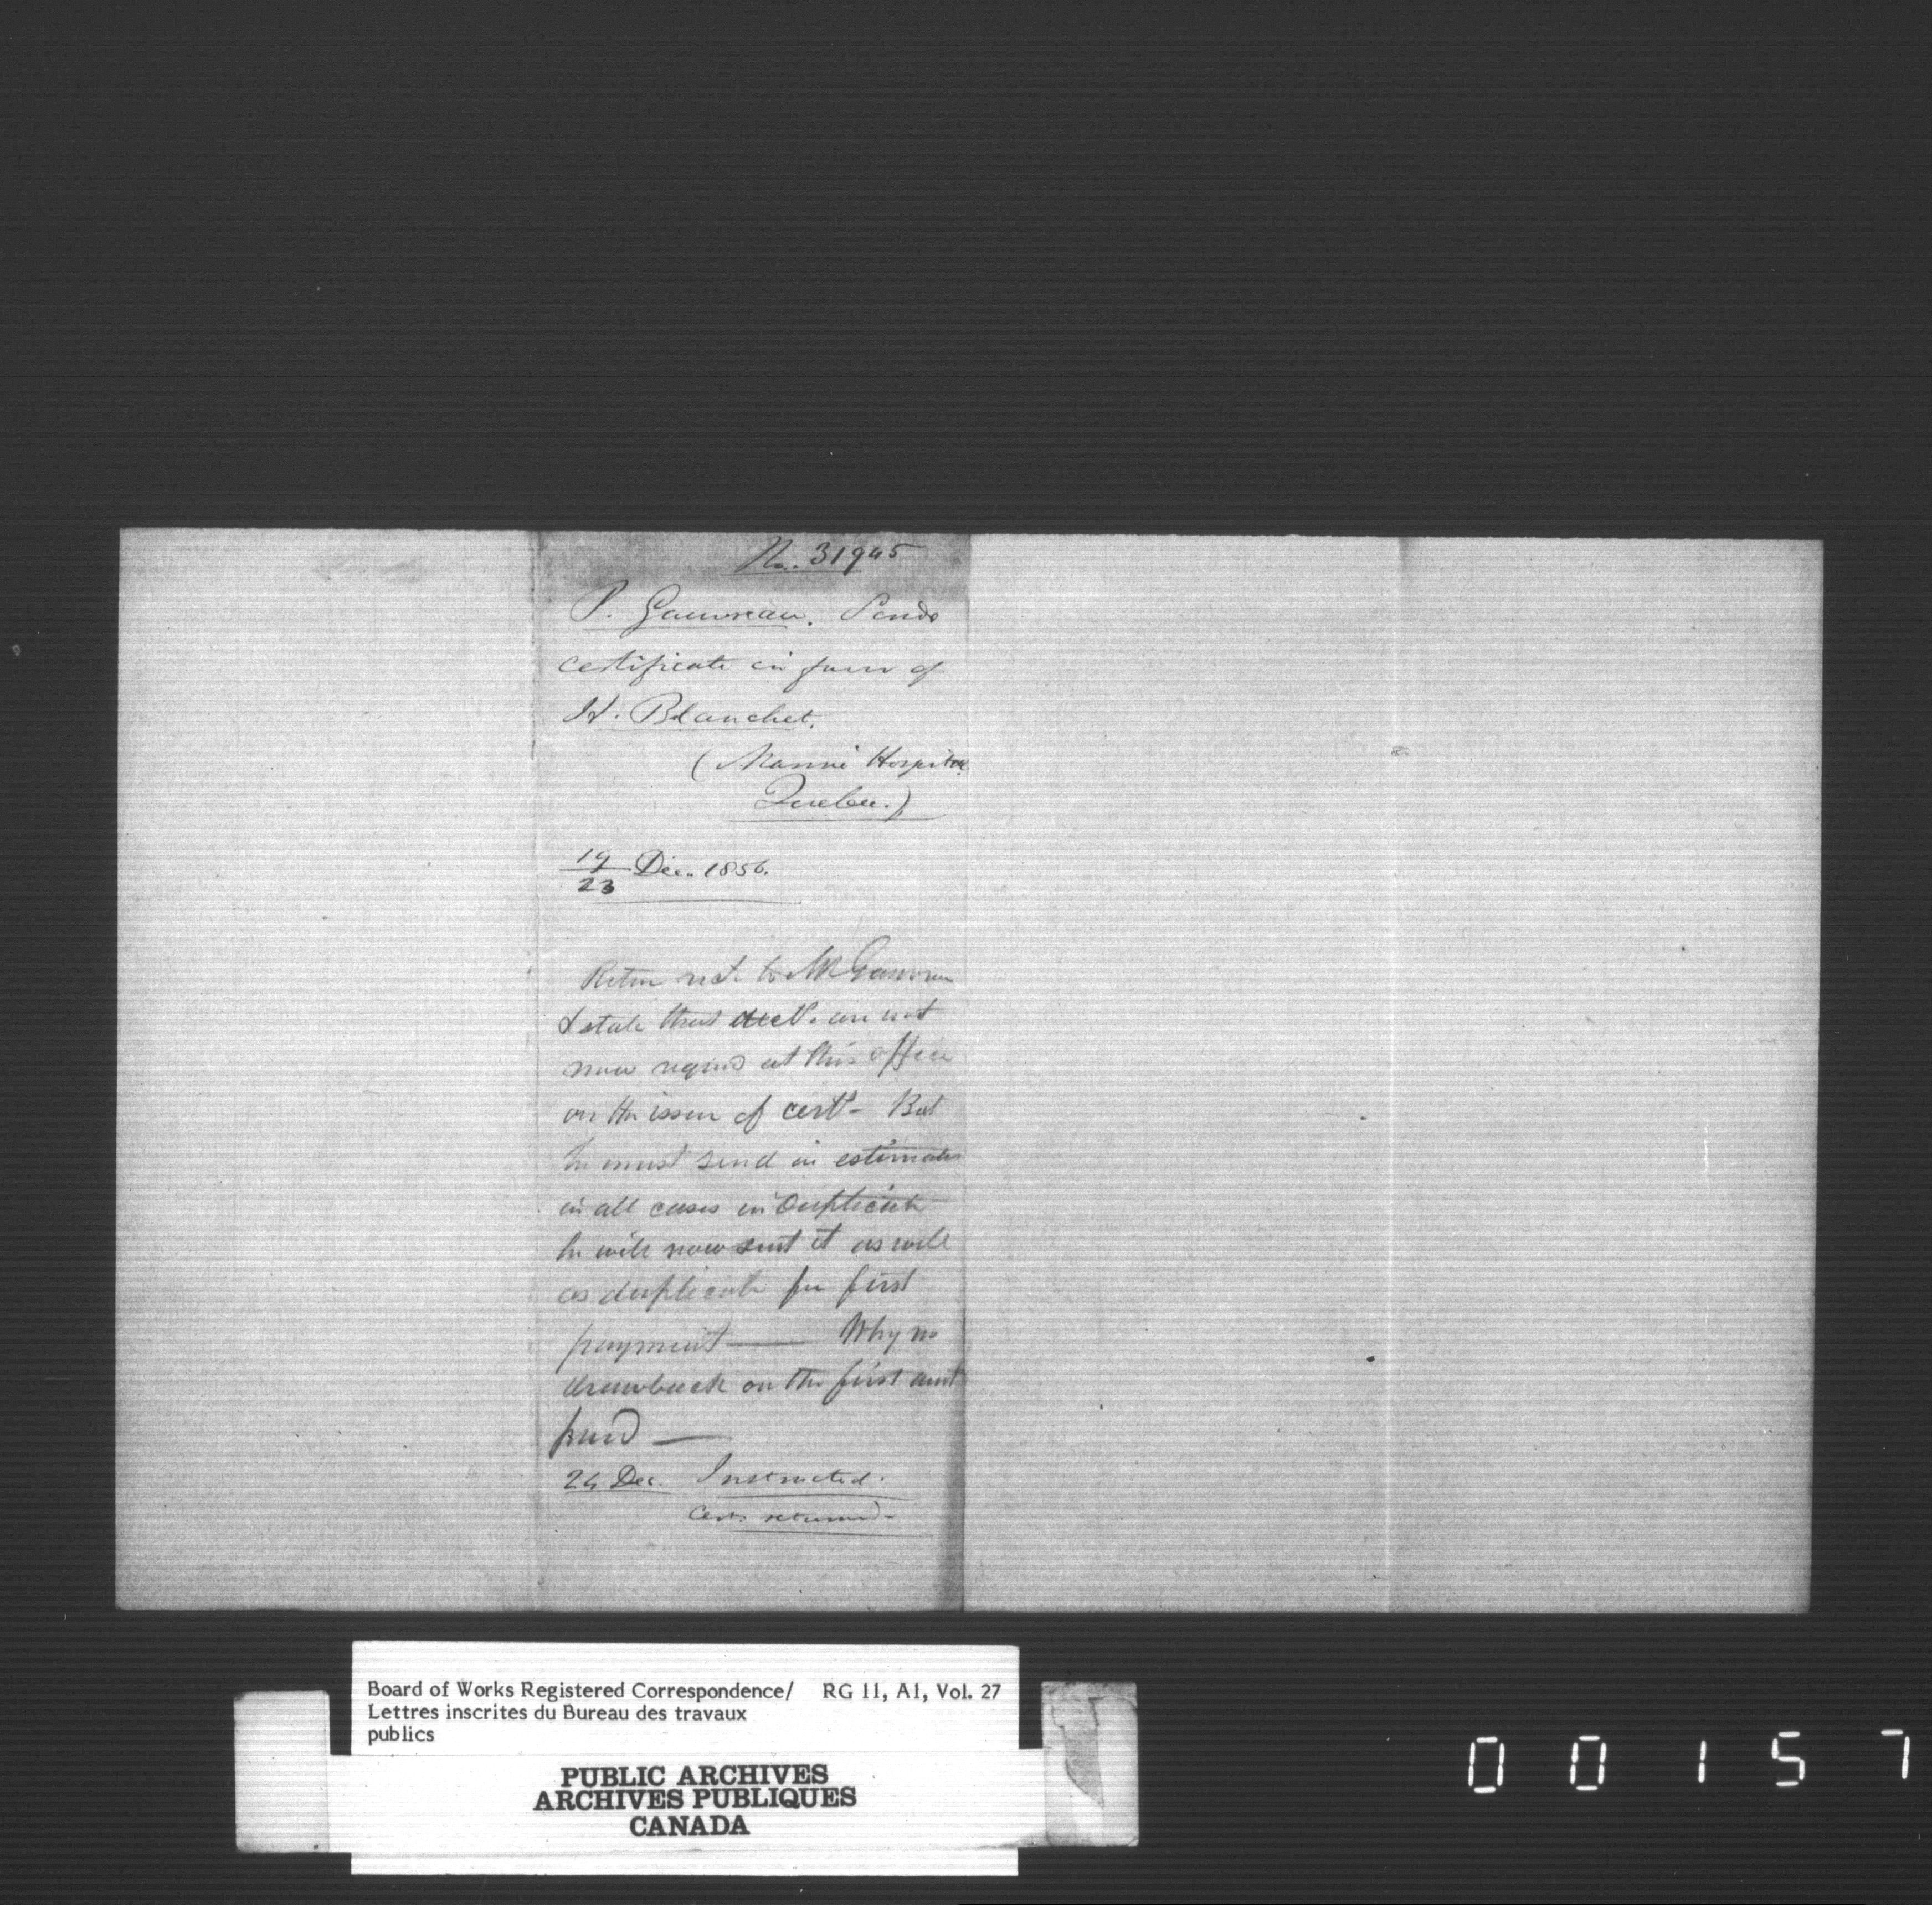 No. 31945
P. Gauvreau. Sends
certificate in favor of
H. Blanchet.
(Marine Hospital
Quebec.)
19/23 Dec. 1856.
Return to Mr Gauvreau
& state that are not
now required at this office
on the issue of certs - But
he must send in estimates
in all cases in Duplicate
he will now send it as well
as duplicate for first
payment — Why no
drawback on the first amt
paid —
24 Dec. Instructed.
Certs returned -
Board of Works Registered Correspondence/ RG 11, A1, Vol. 27
Lettres inscrites du Bureau des travaux
publics
PUBLIC ARCHIVES
ARCHIVES PUBLIQUES
CANADA
0 0 1 5 7